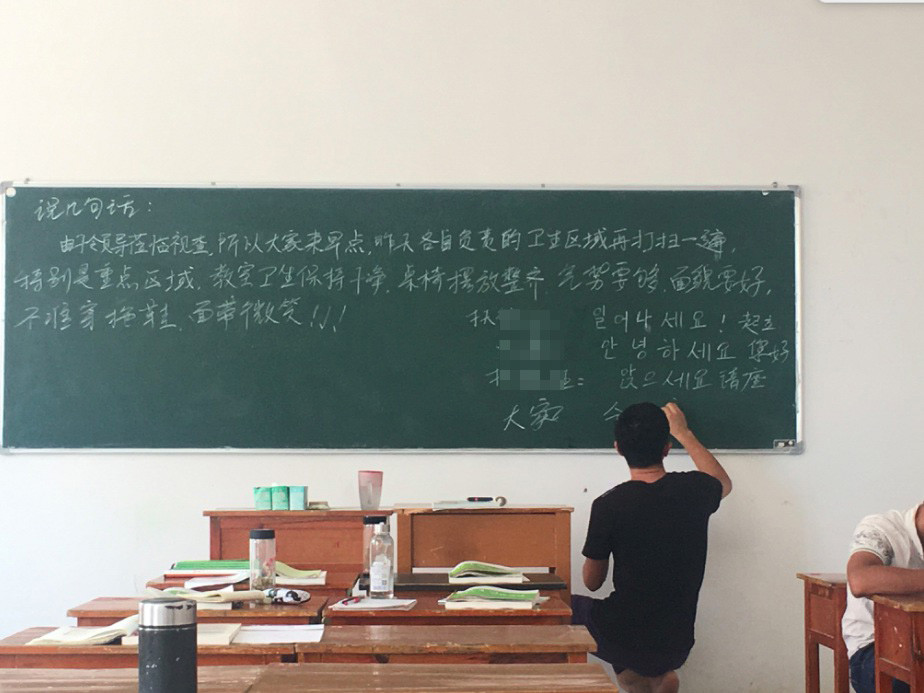 说几句话:
由于领导莅临视查,所以大家来早点,昨天各自负责的卫生区域再打扫一遍,
特别是重点区域.教室卫生保持干净,桌椅摆放整齐,气势要够,面貌要好,
不准穿拖鞋、面带微笑!!!
일어나세요! 起立
안녕하세요 您好
앉으세요 请座
大家 수